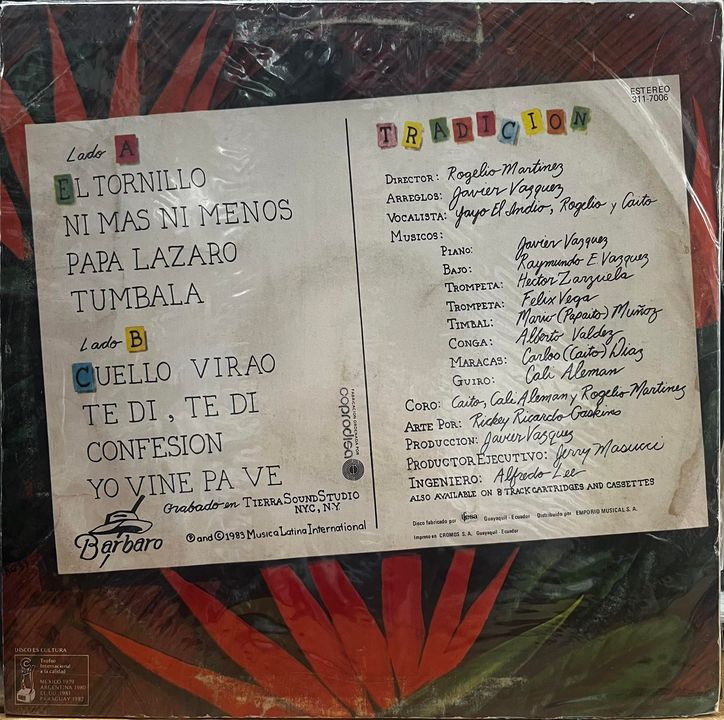 Lado A
EL TORNILLO
NI MAS NI MENOS
PAPA LAZARO
TUMBALA
Lado B
CUELLO VIRAO
TE DI, TE DI
CONFESION
YO VINE PA VE
Grabado en TIERRA SOUND STUDIO
NYC, N.Y
Bárbaro
℗ and © 1983 MUSICA LATINA INTERNATIONAL
FABRICACION ORDENADA POR
coprodisa
ESTEREO
311-7006
TRADICION
DIRECTOR: Rogelio Martinez
ARREGLOS: Javier Vazquez
VOCALISTA: Yayo El Indio, Rogelio y Caito
MUSICOS:
PIANO: Javier Vazquez
BAJO: Raymundo E. Vazquez
TROMPETA: Hector Zarzuela
TROMPETA: Felix Vega
TIMBAL: Mario (Papaito) Muñoz
CONGA: Alberto Valdez
MARACAS: Carlos (Caito) Diaz
GUIRO: Cali Aleman
CORO: Caito, Cali Aleman y Rogelio Martinez
ARTE POR: Rickey Ricardo Gaskins
PRODUCCION: Javier Vazquez
PRODUCTOR EJECUTIVO: Jerry Masucci
INGENIERO: Alfredo Lee
ALSO AVAILABLE ON 8 TRACK CARTRIDGES AND CASSETTES
Disco fabricado por ifesa Guayaquil - Ecuador Distribuido por EMPORIO MUSICAL S. A.
Impreso en CROMOS S. A. Guayaquil - Ecuador
DISCO ES CULTURA
Trofeo
Internacional
a la calidad
MEXICO 1979
ARGENTINA 1980
EE.UU. 1981
PARAGUAY 1982